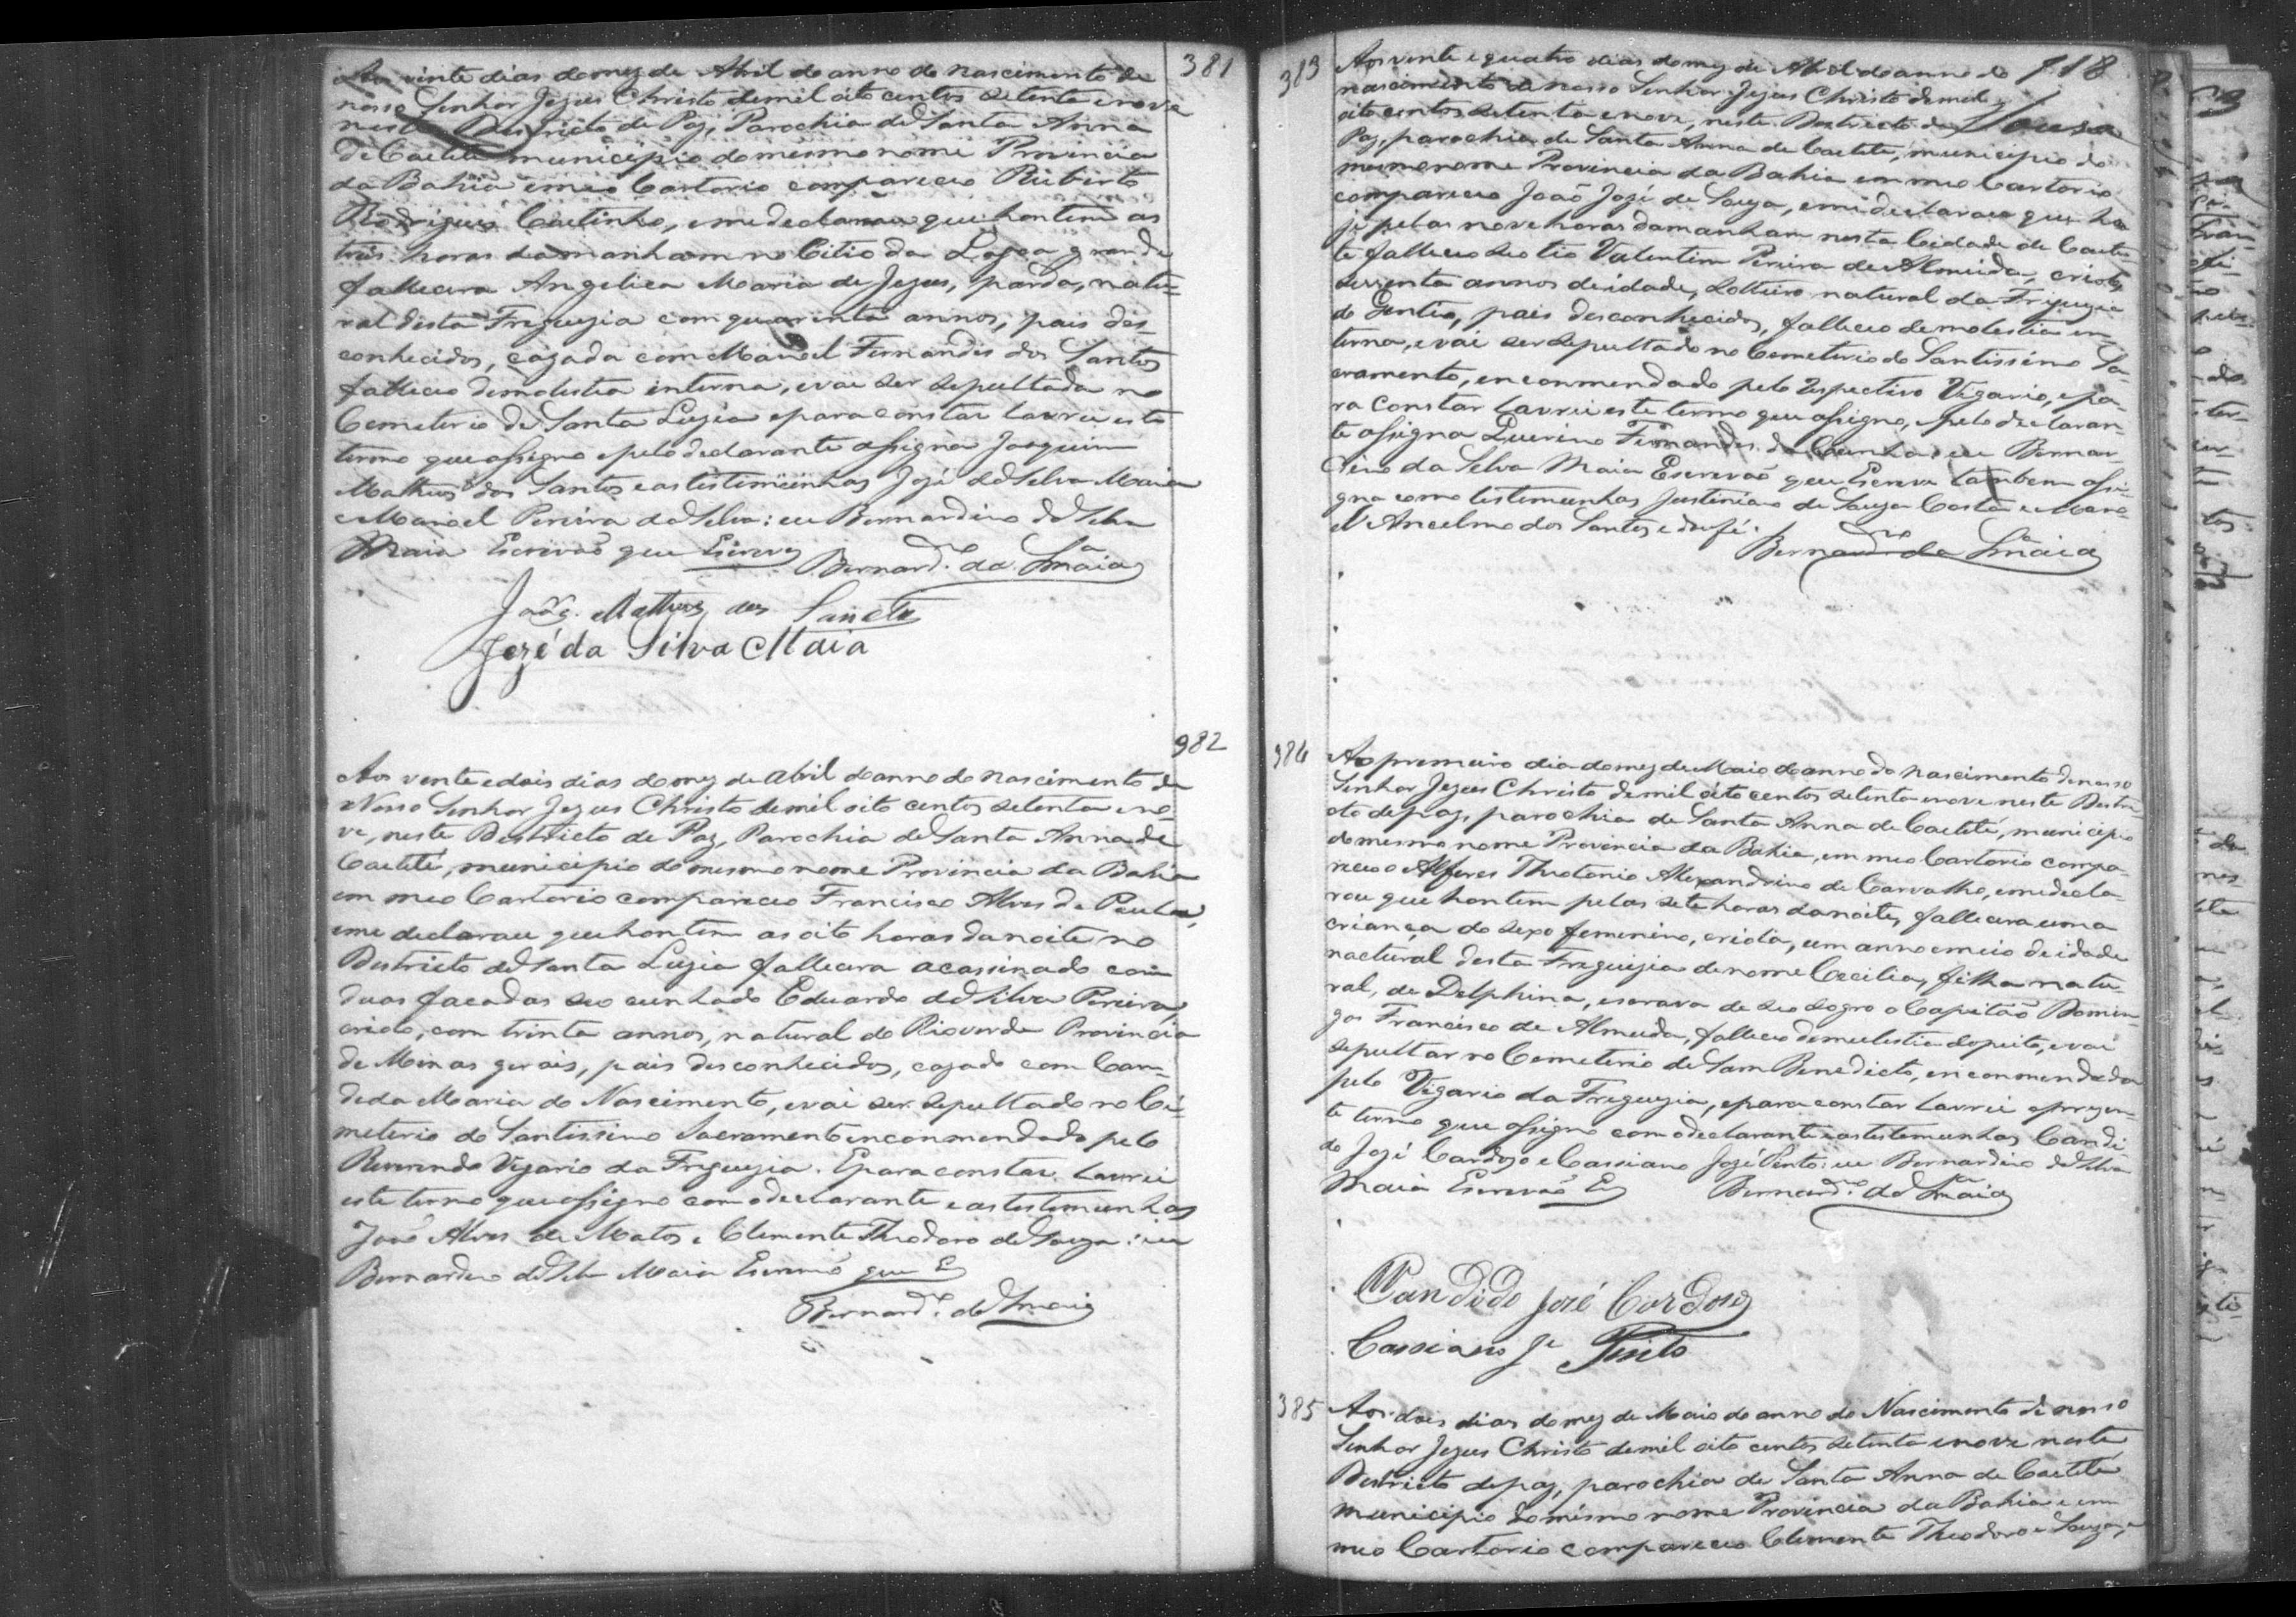 381
Aos vinte dias do mez de Abril do anno do nascimento de
nosso Senhor Jezus Christo de mil oito centos setenta e nove
neste Destricto de Paz, Parochia de Santa Anna
de Caeteté municipio do mesmo nome Provincia
da Bahia em meo Cartorio compareceo Ruberto
Rodrigues Coutinho, e me declarou que hontem as
tres horas da manham no Citio da Lagoa grande
fallecera Angelica Maria de Jezus, parda, natu-
ral desta Freguezia com quarenta annos, pais des
conhecidos, cazada com Manoel Fernandes dos Santos
falleceo de molestia interna, e vai ser sepultada no
Cemeterio de Santa Luzia e para constar lavrei este
termo que assigno e pelo declarante assigna Joaquim
Matheus dos Santos e as testimunhas José da Silva Maia
e Manoel Pereira da Silva: eu Bernardino da Silva
Maia Escrevaõ que Escrevy Bernardº. da S. Maia
Joaqm. Matheus dos Sanctos
Jozé da Silva Maia
982
Aos vente e dois dias do mez de Abril do anno do nascimento de
Nosso Senhor Jezus Christo de mil oito centos setenta e no
ve, neste Destricto de Paz, Parochia de Santa Anna de
Caeteté, municipio do mesmo nome Provincia da Bahia
em meo Cartorio compareceo Francisco Alves de Paula,
e me declarou que hontem as oito horas da noite no
Destricto de Santa Luzia fallecera acassinado com
duas facadas seo cunhado Eduardo da Silva Pereira,
criolo, com trinta annos, natural do Rio verde Provincia
de Minas gerais, pais desconhecidos, cazado com Can-
deda Maria do Nascimento, e vai ser sepultado no Ce-
meterio do Santissimo Sacramento encommendado pelo
Reverendo Vigario da Freguezia. E para constar lavrei
este termo que assigno com o declarante e as testemunhas
José Alves de Matos e Clemente Theodoro de Souza: eu
Bernardino da Silva Maia Escrevaõ que E
Bernardº. da S. Maia
118
Souza
383
Aos vente e quatro dias do mez de Abril do anno do
nascimento de nosso Senhor Jezus Christo de mil
oito centos setenta e nove, neste Destricto de
Paz, parochia de Santa Anna de Caeteté, municipio do
mesmo nome Provincia da Bahia em meo Cartorio
compareceo João José de Souza, e me declarou que ho
je pelas nove horas da manham nesta Cidade de Caete-
te falleceo seo tio Valentim Pereira de Almeida, criolo,
sessenta annos de idade, solteiro natural da Freguezia
do Gentio, pais desconhecidos, falleceo de molestia in-
terna, e vai ser sepultado no Cemeterio do Santissimo Sa-
cramento, encommendado pelo respectivo Vigario, e pa-
ra constar lavrei este termo que assigno, e pelo declaran-
te assigna Querino Fernandes da Cunha: eu Bernar-
dino da Silva Maia Escrevaõ que Escrevi tambem assi-
gna como testemunhas Justiniano de Souza Costa e Mano-
el Ancelmo dos Santos e dou fé.
Bernardº da S. Maia
384
Ao premeiro dia do mez de Maio do anno do nascimento de nosso
Senhor Jezus Christo de mil oito centos setenta e nove neste Destri-
cto de paz, parochia de Santa Anna de Caeteté, municipio
do mesmo nome Provincia da Bahia, em meo Cartorio compa-
receo o Alferes Theotonio Alexandrino de Carvalho, e me decla-
rou que hontem pelas sete horas da noite, fallecera uma
criança do sexo femenino, criola, um anno e meio de idade
nactural desta Freguizia de nome Cecilia, filha natu-
ral, de Delphina, escrava de seo sogro o Capitaõ Domin-
gos Francisco de Almeida, falleceo de molestia do peito, e vai
sepultar no Cemeterio de Sam Benedicto, encommendada
pelo Vigario da Freguezia, e para constar lavrei o prezen-
te termo que assigno com o declarante e as testemunhas Candi-
do José Cardozo e Cassiano José Pinto: eu Bernardino da Silva
Maia Escrevaõ E Bernardº. da S. Maia
Candido José Cardoso
Cassiano Je Pinto
385
Aos dois dias do mez de Maio do anno do Nascimento de nosso
Senhor Jezus Christo de mil oito centos setenta e nove neste
Destricto de paz, parochia de Santa Anna de Caeteté
municipio do mesmo nome Provincia da Bahia e em
meo Cartorio compareceo Clemente Theodoro e Souza, e